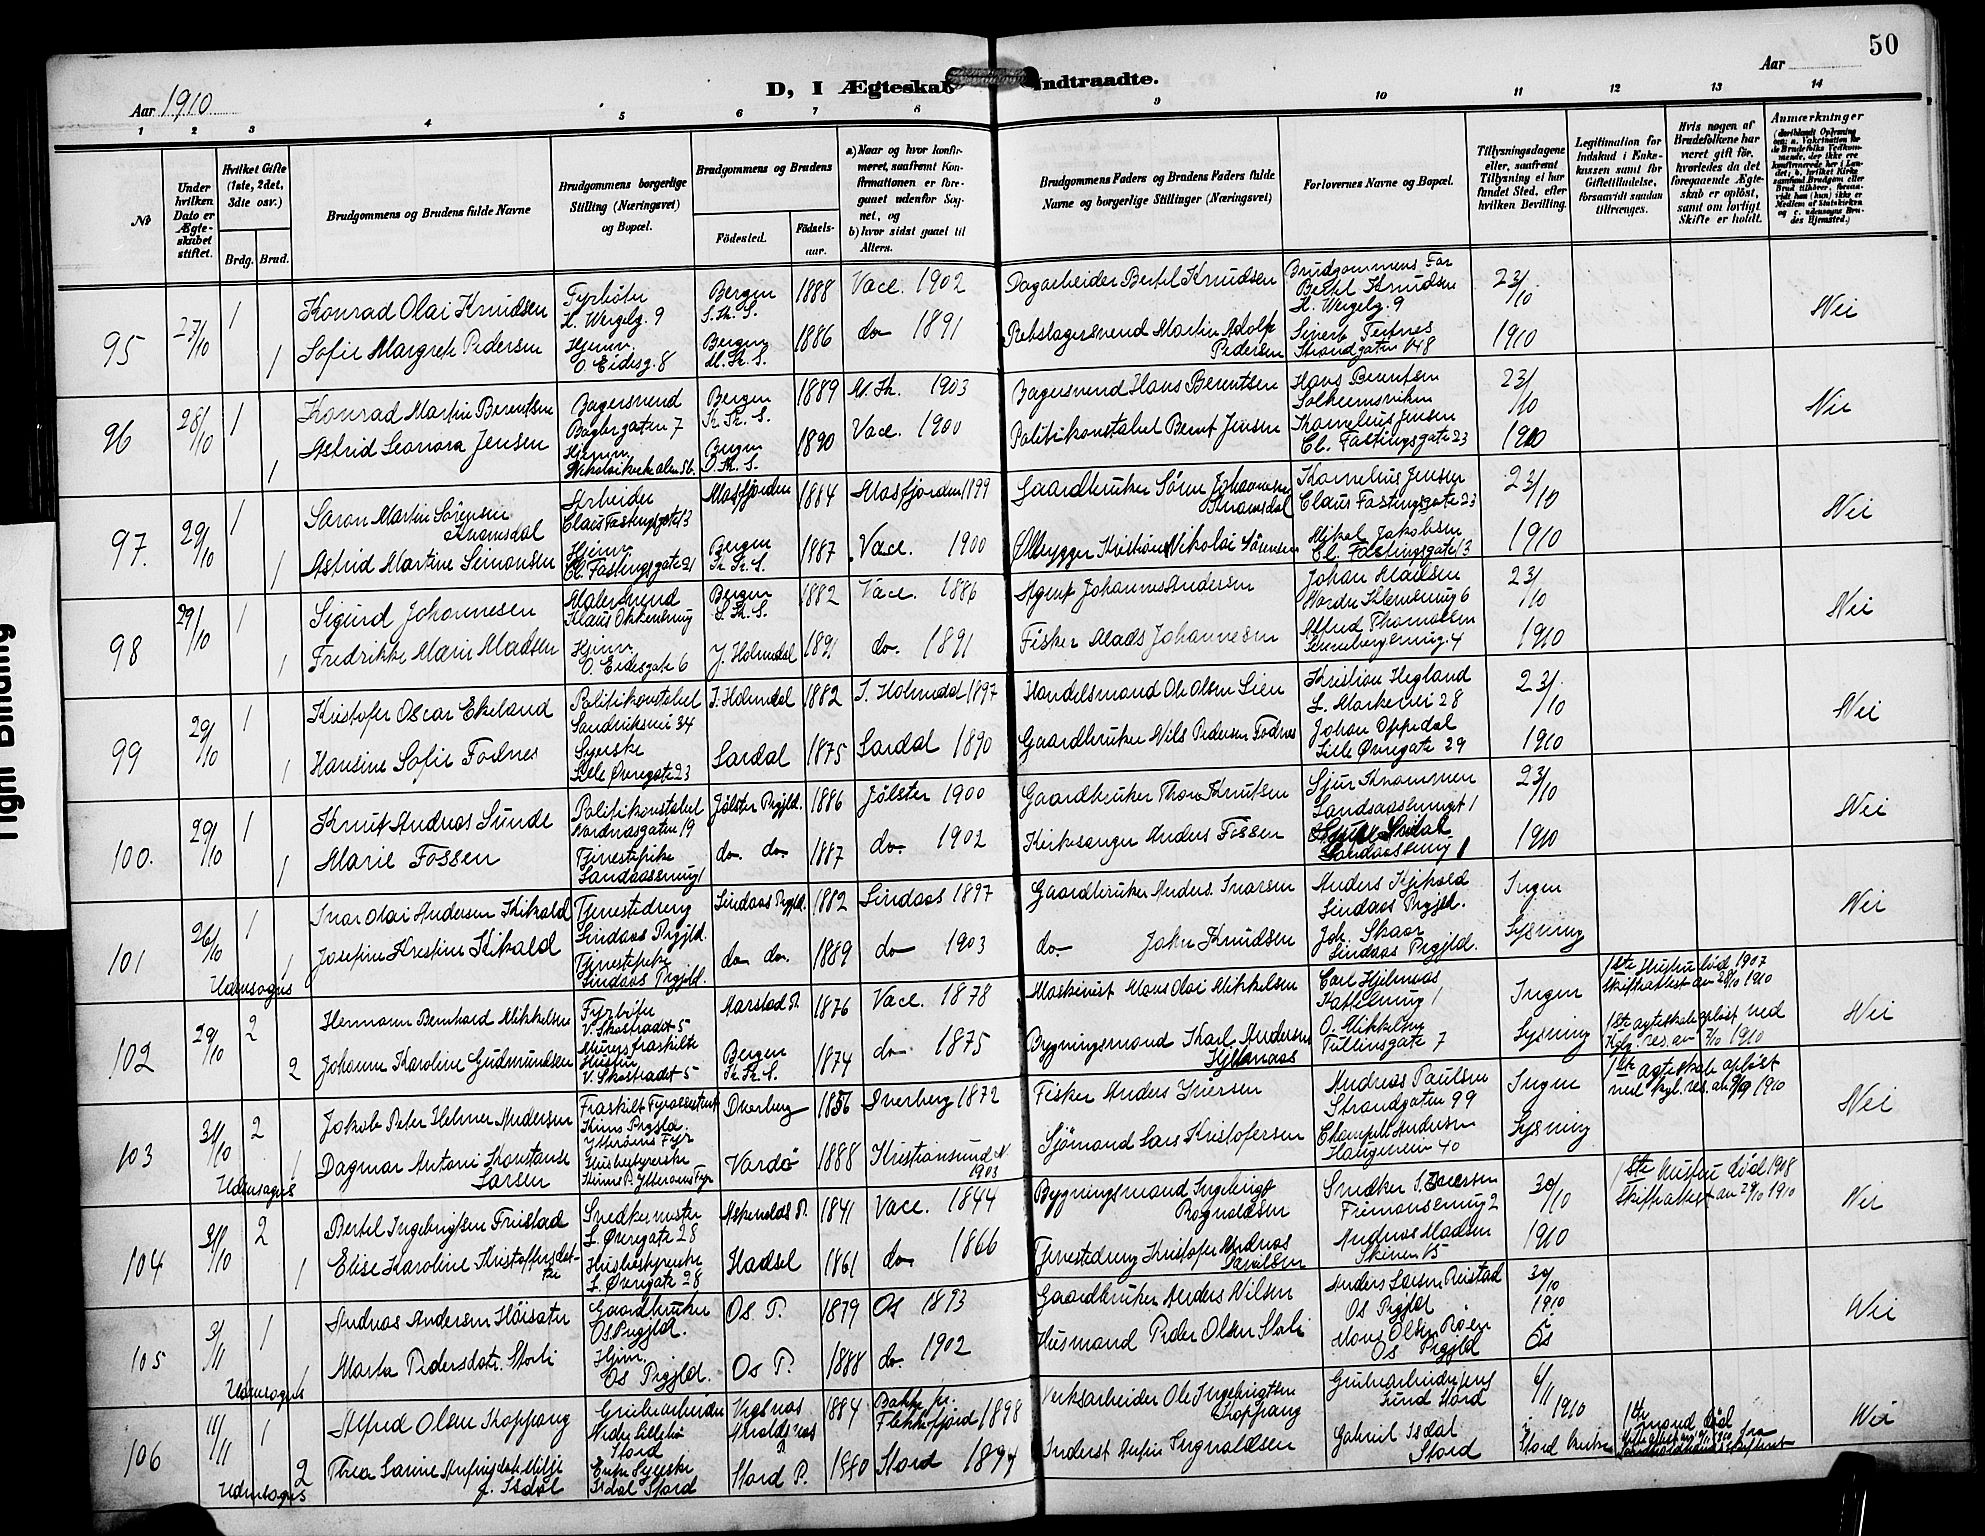 50
D, I Ægteskab Indtraadte.
Aar 1910
Aar
1 2 3 4 5 6 7 8 9 10 11 12 13 14
No
Under hvilken Dato er Ægteskabet stiftet.
Hvilket Gifte (1ste, 2det, 3die osv.)
Brdg. Brud.
Brudgommens og Brudens fulde Navne
Brudgommens borgerlige Stilling (Næringsvei) og Bopæl.
Brudgommens og Brudens
Fødested.
Fødselsaar.
a) Naar og hvor konfirmeret, saafremt Konfirmationen er foregaaet udenfor Sognet, og
b) hvor sidst gaaet til Alters.
Brudgommens Faders og Brudens Faders fulde Navne og borgerlige Stillinger (Næringsvei)
Forlovernes Navne og Bopæl.
Tillysningsdagene eller, saafremt Tillysning ei har fundet Sted, efter hvilken Bevilling.
Legitimation for Indskud i Enkekassen samt for Giftetilladelse, forsaavidt saadan tiltrænges.
Hvis nogen af Brudefolkene har været gift før, hvorledes da det foregaaende Ægteskab er opløst, samt om lovligt Skifte er holdt.
Anmærkninger
95 27/10 1 Konrad Olai Knudsen Fyrbøter H. Wergelg. 9 Bergen S. Kr. S. 1888 Vace. 1902 Dagarbeider Bertel Knudsen Brudgommens Far Bertel Knudsen H. Wergelg. 9 23/10 Nei
1 Sofie Margrete Pedersen Hjemv. O. Eidesg. 8 Bergen M. Kr. S. 1886 do 1891 Rebslagersvend Martin Adolf Pedersen Sivert Tertnes Strandgaten 048 1910
96 28/10 1 Konrad Martin Berentsen Bagersvend Baglergaten 7 Bergen Kr. Kr. S. 1889 M. Kr. 1903 Bagersvend Hans Berentsen Hans Berentsen Solheimsviken 23/10 Nei
1 Astrid Leonora Jensen Hjemv. Bergen D. Kr. S. 1890 Vace. 1900 Politikonstabel Bernt Jensen Kornelius Jensen Cl. Fastingsgate 23 1910
97. 29/10 1 Saron Martin Sørensen Kvamsdal Arbeider Claus Fastingsgate 13 Masfjorden 1884 Masfjorden 1899 Gaardbruker Søren Johannesen Kvamsdal Kornelius Jensen Claus Fastingsgate 23 23/10 Nei
1 Astrid Martine Simonsen Hjemv. Cl. Fastingsgate 21 Bergen Kr. Kr. S. 1887 Vace. 1900 Ølbrygger Kristian Nikolai Sørensen Mikal Jakobsen Cl. Fastingsgate 13 1910
98 29/10 1 Sigurd Johannesen Malersvend Klaus Okkensmug Bergen S. Kr. S. 1882 Vace. 1886 Agent Johannes Andersen Johan Madsen Nordre Klevesmug 6 23/10 Nei
1 Fredrikke Marie Madsen Hjemv. O. Eidesgate 6 Y. Holmedal 1891 do. 1891 Fisker Mads Johannesen Alfred Thomassen 4 1910
99 29/10 1 Kristofer Oscar Ekeland Politikonstabel Sandviksvei 34 I. Holmedal 1882 I. Holmedal 1897 Handelsmand Ole Olsen Lien Kristian Hegland L. Markevei 28 23/10 Nei
1 Hansine Sofie Fodnes Syerske Lille Øvregate 23 Lardal 1875 Lardal 1890 Gaardbruker Nils Pedersen Fodnes Johan Oppedal Lille Øvregate 29 1910
100. 29/10 1 Knut Andreas Sunde Politikonstabel Nordnæsgaten 19 Jølster Prgjld. 1886 Jølster 1900 Gaardbruker Thor Knutsen Sjur Kvammen Landaassmuget 1 23/10 Nei
1 Marie Fossen Tjenestepike Sandaassmug 1 do. do. 1887 do. 1902 Kirkesanger Anders Fossen 1910
101 26/10 1 Ivar Olai Andersen Kikald Tjenestedreng Lindaas Prgjld. Lindaas Prgjld. 1882 Lindaas 1897 Gaardbruker Anders Ivarsen Anders Kjikald Lindaas Prgjld. Ingen Nei
Udensogns 1 Josefine Kristine Kikald Tjenestepike Lindaas Prgjld. do do. 1889 do 1903 do. John Knudsen Joh. Skaar Lindaas Prgjld. Lysning
102 29/10 2 Hermann Bernhard Mikkelsen Fyrbøter V. Skostrædet 5 Marstad P. 1876 Vace. 1878 Maskinist Mons Olai Mikkelsen Carl Hjelmaas 1 Ingen 1ste Hustru død 1907 Skifteattest av 28/10 1910 Nei
2 Johanne Karoline Gudmundsen Murers fraskilte Hustru V. Skostrædet 5 Bergen Kr. Kr. S. 1874 do 1875 Bygningsmand Karl Andersen Hjelmaas O. Mikkelsen Tullinsgate 7 Lysning 1ste ægteskab opløst ved Kgl. res. av 7/10 1910
103 31/10 2 Jakob Peter Helmer Andersen Fraskilt Fyrassistent Kinns Prgjld. Ytterøens Fyr Dverberg 1856 Dverberg 1872 Fisker Anders Iversen Andreas Paulsen Strandgaten 99 Ingen 1ste ægteskab opløst ved kgl. res. av 1910 Nei
Udensogns 1 Dagmar Antoni Konstanse Larsen Husbestyrerske Kinns P. Ytterøens Fyr Vardø 1888 Kristiansund N. 1903 Sjømand Lars Kristofersen Andersen Haugeveien 40 Lysning
104 31/10 2 Bertel Ingebrigtsen Fristad Snedkermester L. Øvregate 28 Askevolds P. 1841 Vace. 1844 Bygningsmand Ingebrigt Rognaldsen Snedker S. Iversen 2 30/10 1ste Hustru død 1908 Skifteattest av 29/10 1910 Nei
1 Elise Karoline Kristoffersdatter Husbestyrerske L. Øvregate 28 Hadsel 1861 do 1866 Tjenestedreng Kristofer Andreas Danielsen Andreas Madsen Skiven 15 1910
105 3/11 1 Andreas Andersen Høisæter Gaardbruker Os Prgjld. Os P. 1879 Os 1893 Gaardbruker Anders Nilsen Anders Larsen Reistad Os Prgjld 30/10 1910 Nei
Udensogns 1 Marta Pedersdatr. Storli Hjem. Os Prgjld. Os P. 1888 do. 1902 Husmand Peder Olsen Storli Mons Olsen Røen Os Prgjld Os
106 11/11 1 Alfred Olsen Koppang Grubearbeider Nedre Lillebø Stord Vigsnæs Avaldsnæs 1884 Bakke pr. Flekkefjord 1898 Verksarbeider Ole Ingebrigtsen Koppang Grubearbeider Lund Stord 6/11 1910 1ste mand død Nei
Udensogns 2 Thea Sarine f. Isdal Enke Syerske Isdal Stord Stord P. 1880 Stord 1894 Inderst Ingvaldsen Gabriel Isdal Stord Stord